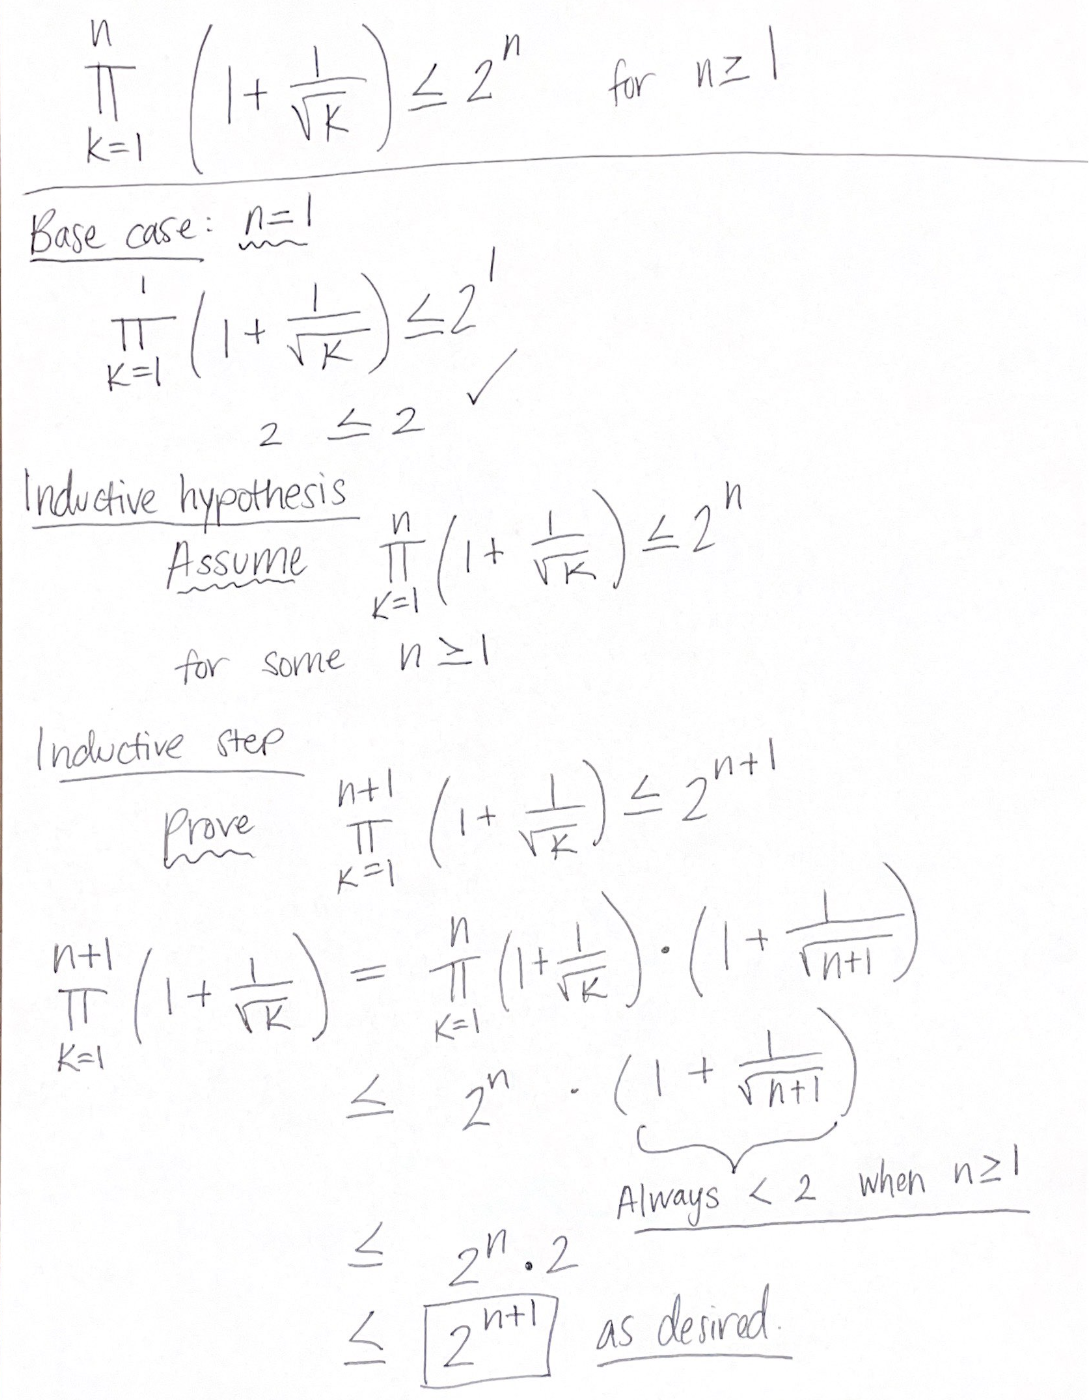 n ∏ k=1 (1 + 1/√K) ≤ 2^n for n ≥ 1
Base case: n=1
1 ∏ K=1 (1 + 1/√K) ≤ 2^1
2 ≤ 2 ✓
Inductive hypothesis
Assume n ∏ K=1 (1 + 1/√K) ≤ 2^n
for some n ≥ 1
Inductive step
Prove n+1 ∏ K=1 (1 + 1/√K) ≤ 2^(n+1)
n+1 ∏ K=1 (1 + 1/√K) = n ∏ K=1 (1 + 1/√K) · (1 + 1/√(n+1))
≤ 2^n · (1 + 1/√(n+1))
Always < 2 when n ≥ 1
≤ 2^n · 2
≤ 2^(n+1) as desired.